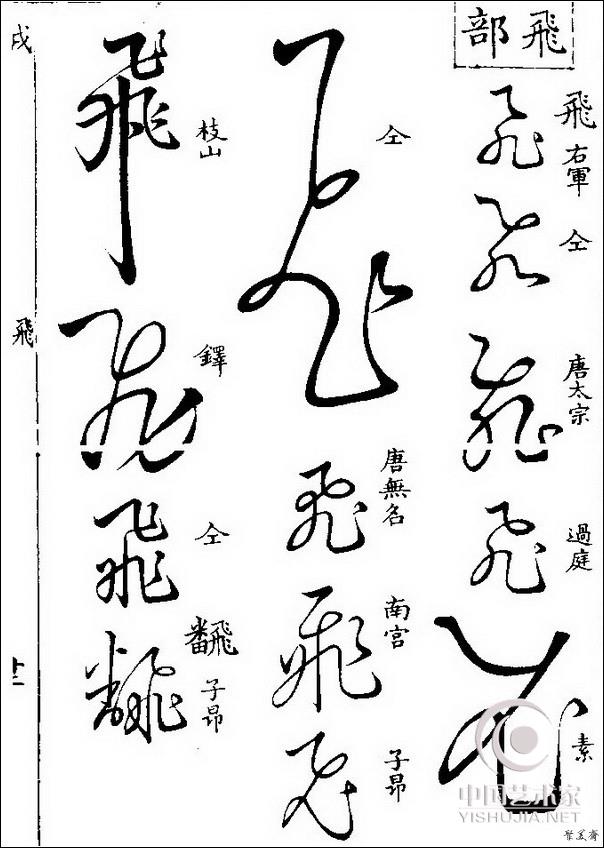 飛部
飛 右軍
仝
唐太宗
過庭
素
仝
唐無名
南宮
子昂
枝山
鐸
仝
飜 子昂
戌
飛
十二
中国艺术家
YISHUJIA.NET